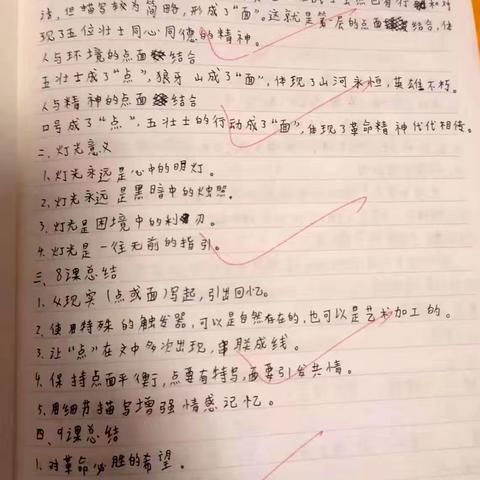 法，但描写较为简略，形成了“面”。这就是第二层的点面结合，体
现了五位壮士同心同德的精神。
人与环境的点面结合
五壮士成了“点”，狼牙山成了“面”，体现了山河永恒，英雄不朽。
人与精神的点面结合
口号成了“点”，五壮士的行动成了“面”，体现了革命精神代代相传。
二、灯光意义
1、灯光永远是心中的明灯。
2、灯光永远是黑暗中的烛照。
3、灯光是困境中的利刃。
4、灯光是一往无前的指引。
三、8课总结
1、从现实（点或面）写起，引出回忆。
2、使用特殊的触发器，可以是自然存在的，也可以是艺术加工的。
3、让“点”在文中多次出现，串联成线。
4、保持点面平衡，点要有特写，面要引发共情。
5、用细节描写增强情感记忆。
四、9课总结
1、对革命必胜的希望。